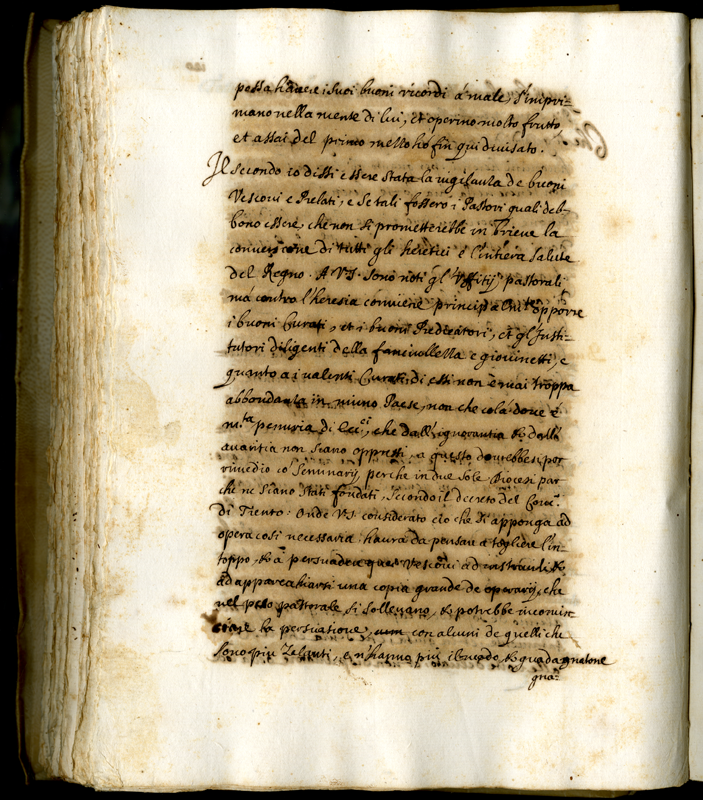 possa havere i suoi buoni ricordi á male, s'inpri-
mano nella mente di lui, et operino molto frutto,
et assai del primo mezzo ho fin qui divisato.
Il secondo io dissi essere stata la vigilanza de buoni
Vescovi e Prelati, e se tali fossero i Pastori quali deb-
bono essere, che non si prometterebbe in brieve la
conversione di tutti gli heretici e l'intiera salute
del Regno. A V.S. sono noti gl'Uffitij pastorali
má contro l'heresia conviene principalm.te opporre
i buoni Curati, et i buoni Predicatori, et gl'Insti-
tutori diligenti della fanciullezza e giovinetti, e
quanto a i valenti Curati di essi non è mai troppa
abbondanza in niuno Paese, non che colà dove è
m.ta penuria di che dall'ignorantia & dall'
avaritia non siano oppressi, a questo dovrebbesi por
rimedio co' Seminarij, perche in due sole Diocesi par
che ne siano stati fondati, secondo il decreto del Conc.
di Trento: Onde V.S. considerato ciò che si opponga ad
opera cosi necessaria haura da pensare a togliere l'in-
toppo, & a persuadere quei Vescovi ad &
ad apparecchiarsi una copia grande de operarij, che
nel peso pastorale si sollevano, & potrebbe incominc
ciare la persuatione, con alcuni de quelli che
sono piu zelanti, e n'hanno più il modo, & guadagnatone
gna-